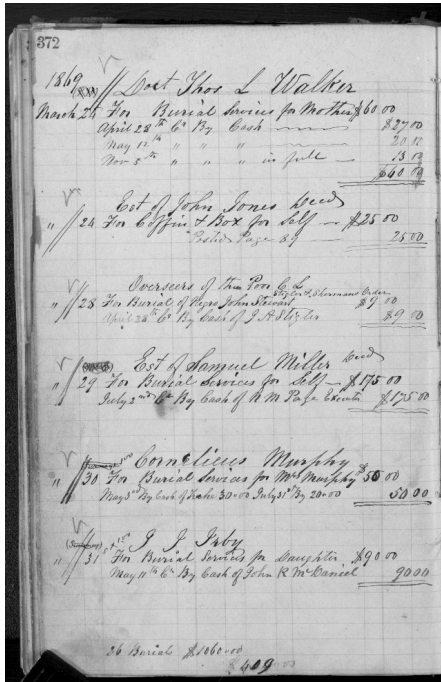 372
1869 // Doct Thos L Walker
March 24 For Burial Services for Mother $60 00
April 28th Cr By Cash $27 00
May 12th " " " 20 00
Nov 5th " " " in full 13 00
$60 00
Est of John Jones Decd
" // 24 For Coffin & Box for Self $25 00
Posted Page 89 25 00
Overseers of the Poor C L
Stigler & Shermans Order
" // 28 For Burial of Negro John Stewart $9 00
April 30th Cr By Cash of J A Stigler $9 00
Est of Samuel Miller Decd
" // 29 For Burial Services for Self $175 00
July 2nd Cr By Cash of R M Page Executor $175 00
Cornelicus Murphy
" // 30 For Burial Services for Mrs Murphy $50 00
May 3rd By Cash of 30=00 July 31st By 20=00 50 00
G J Irby
" // 31st For Burial Services for Daughter $90 00
May 11th Cr By Cash of John R McDaniel 90 00
26 Burials $1060=00
$409=00